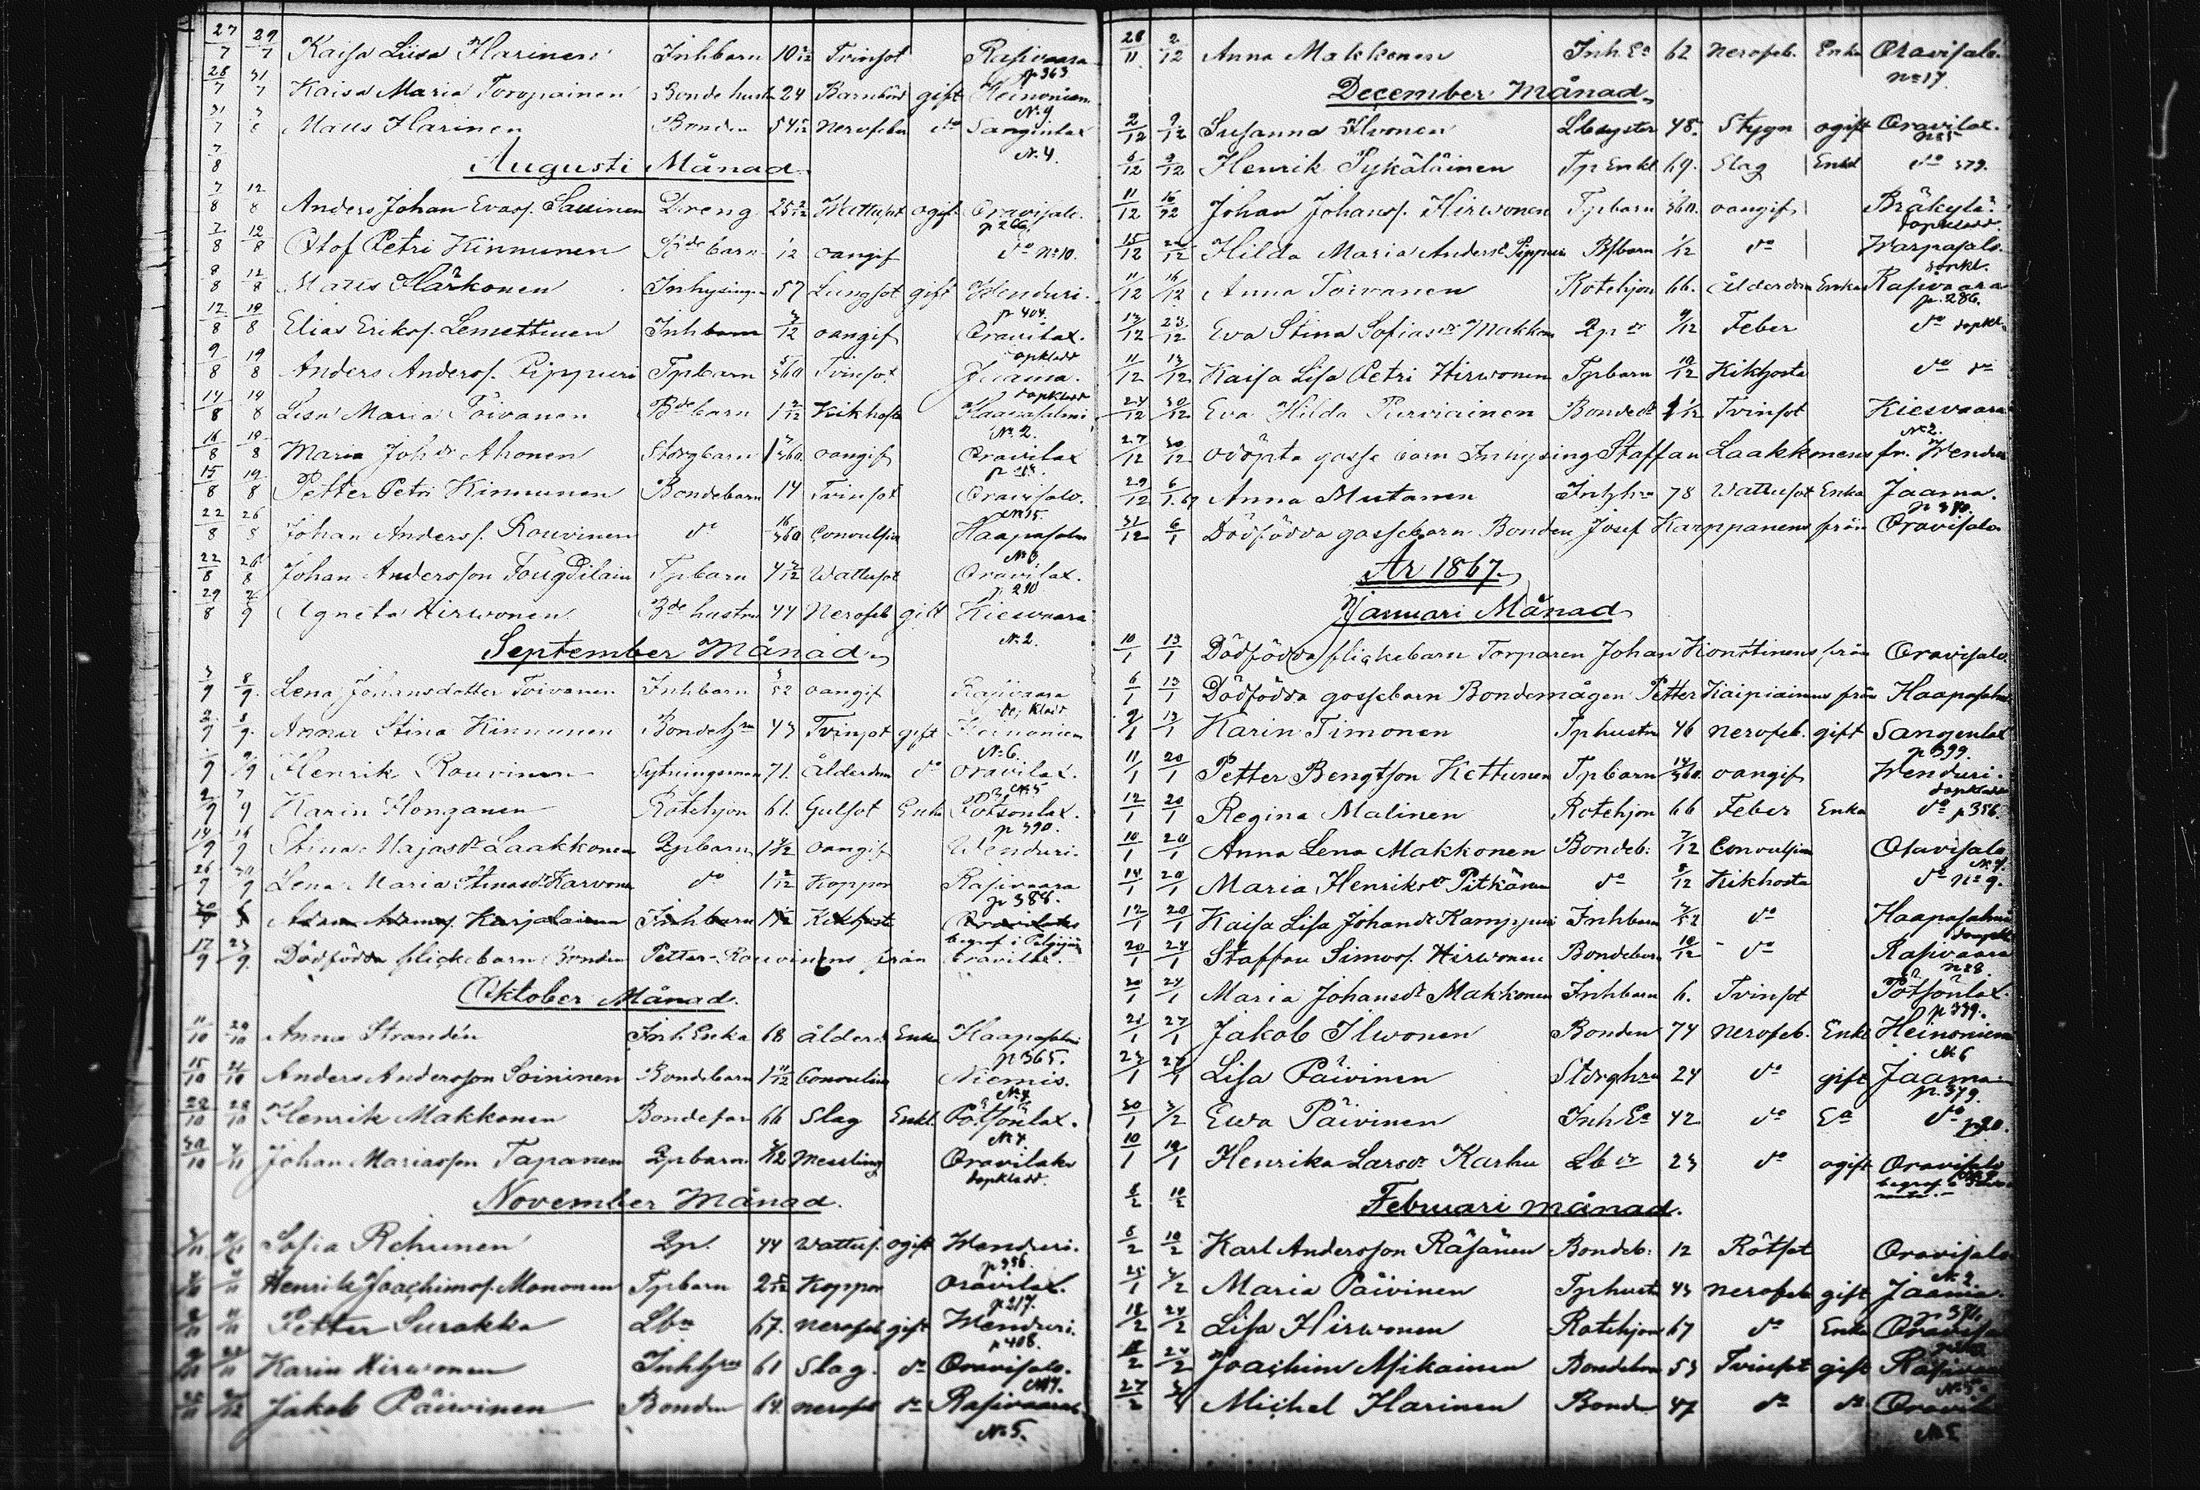 27/7 29/7 Kaisa Liisa Harinen Inhbarn 10 2/12 Tvinsot Rasivaara p 363
28/7 31/7 Kaisa Maria Toropainen Bonde hust 24 Barnbörd gift Heinoniem N:9
31/7 Matts Harinen Bonden Nervfeber do Sangenlax N:4.
Augusti Månad.
7/8 12/8 Anders Johan Evas. Sauinen Dreng Wattusot ogift Oravisalo.
7/8 12/8 Olof Petri Kinnunen Bde barn 1/12 oangif do No 10.
8/8 12/8 Matts Härkönen Inhysing 57 Lungsot gift Wenduri. p 404.
12/8 19/8 Elias Eriks. Lemettinen Inhbarn 3/12 oangif Oravilax. dopkladd
9/8 19/8 Anders Anders. Pippuri Tpbarn 5/360 Tvinsot Jaama. dopkladd
14/8 19/8 Lisa Maria Toivanen Bdebarn 1 2/12 Kikhosta Haapasalmi No. 2.
16/8 19/8 Maria Joh dr Ahonen oangif Oravilax
15/8 19/8 Petter Petri Kinnunen Bondebarn 14 Tvinsot Oravisalo. No 15.
22/8 26/8 Johan Anders. Rouvinen do 16/360 Convulsion Haapasalm No 3
22/8 26/8 Johan Andersson Tpbarn Wattusot Oravilax. p. 210
29/8 Agneta Hirwonen Bde hustru 44 Nervfeb gift Kiesvaara No. 2.
September Månad.
3/9 8/9 Lena Johansdotter Toivanen Inhbarn 3/52 oangif Rasivaara dopkladd
2/9 8/9 Anna Stina Kinnunen Bondehru 43 Tvinsot gift Heinoniem No 6.
Henrik Rouvinen Sytningsman 71. Ålderdom do Oravilax. No 5
2/9 Karin Honganen Rotehjon 61. Gulsot Enka Pötsönlax. p 390.
14/9 16/9 Stina Majas dr Laakkonen Qpbarn oangif Wenduri.
26/9 30/9 Lena Maria Karvonen do 1 2/12 Koppor Rasivaara p 388.
Adam Adams. Karjalainen Inhbarn Kikhosta Oravilaks
17/9 23/9 Dödfödda flickebarn Bonden Petter Rouvinens från Oravilax.
Oktober Månad.
11/10 Anna Strandén Inh Enka 68 ålderd Enka Haapasalmi p 365.
15/10 21/10 Anders Andersson Soininen Bondebarn Convulsion Niemis. No 4
22/10 28/10 Henrik Makkonen Bondefar 66 Slag Enkl. Pötsönlax. No 4.
30/10 4/11 Johan Mariasson Tapanen Qpbarn Messling Oravilaks dopkladd.
November Månad.
Sofia Rehunen Qp. 44 Wattus. ogift Wenduri. p 356.
Henrik Joachims. Mononen Tpbarn Koppor Oravilax. p 217.
Petter Surakka Lbn 67. Nervfeb gift Wenduri. p 408.
Karin Hirwonen Inhhru 61 Slag. do Oravisalo.
Jakob Päivinen Bonden 64. Nervfeb do Rasivaara No 5.
28/11 2/12 Anna Makkonen Inh. Ea 62 Nervfeb. Enka Oravisalo. No 17.
December Månad.
2/12 9/12 Susanna Ilvonen Lbsyster 48. Stygn ogift Oravilax.
9/12 Henrik Pykäläinen Tp Enkl 69. Slag Enkl do 379.
11/12 16/12 Johan Johans. Hirwonen Tpbarn oangif Bräkylä. dopkladd.
15/12 Hilda Maria Anders dr Pippuri 1/12 do Warpasalo. dopkl.
11/12 16/12 Anna Toivanen Rotehjon 66. ålderdom Enka Rasivaara p. 286.
13/12 23/12 Eva Stina Sofias dr Makkon Qp dr 9/12 Feber do dopkl.
11/12 13/12 Kaisa Lisa Petri Hirwonen Tpbarn 10/12 Kikhosta do do
24/12 30/12 Eva Hilda Purviainen Bonde dr Tvinsot Kiesvaara No 2.
27/12 30/12 odöpta gosse barn Inhysing Staffan Laakkonens fr. Wenduri
29/12 6/1.67 Anna Mutanen Inhhru 78 Wattusot Enka Jaama. p 370.
31/12 6/1 Dödfödda gossebarn Bonden Josef Karppanens från Oravisalo
År 1867.
Januari Månad
10/1 13/1 Dödfödda flickebarn Torparen Johan Konttinens från Oravisalo.
6/1 13/1 Dödfödda gossebarn Bondemågen Petter Kaipiainens från Haapasalm
9/1 13/1 Karin Timonen Tphustru 46 Nervfeb. gift Sangenlax p 399.
11/1 20/1 Petter Bengtson Kettunen Tpbarn 14/360. oangif Wenduri. dopkladd
12/1 20/1 Regina Malinen Rotehjon 66 Feber Enka do p 356.
10/1 20/1 Anna Lena Makkonen Bondeb: 7/12 Convulsion Oravisalo No 4.
14/1 20/1 Maria Henriks dr Pitkänen do 8/12 Kikhosta do No 9.
12/1 20/1 Kaisa Lisa Johans dr Kamppuri Inhbarn 7/52 do Haapasalmi dopkl
20/1 24/1 Staffan Simos. Hirwonen Bondebarn 10/12 do Rasivaara No 8.
20/1 27/1 Maria Johans dr Makkonen Inhbarn 6. Tvinsot Pötsönlax. p 339.
21/1 27/1 Jakob Ilwonen Bonden 74 Nervfeb. Enkl Heinoniem No 6
23/1 27/1 Lisa Päivinen 24 do gift Jaama p. 379.
30/1 3/2 Ewa Päivinen Inh Ea 42 do Ea do p 20.
10/1 19/1 Henrika Lars dr Karhu Lb dr 23 do ogift Oravisalo
8/2 10/2 Februari månad.
8/2 10/2 Karl Andersson Räsänen Bondeb: 12 Rötsot Oravisalo No 2.
25/1 3/2 Maria Päivinen Tphustr 43 Nervfeb gift Jaama.
18/2 24/2 Lisa Hirwonen Rotehjon 67 do Enka Oravisa
24/2 Joachim Mikainen 53 Tvinsot gift Rasivaara No 5
27/2 Michel Harinen Bonden 47 do do No 5